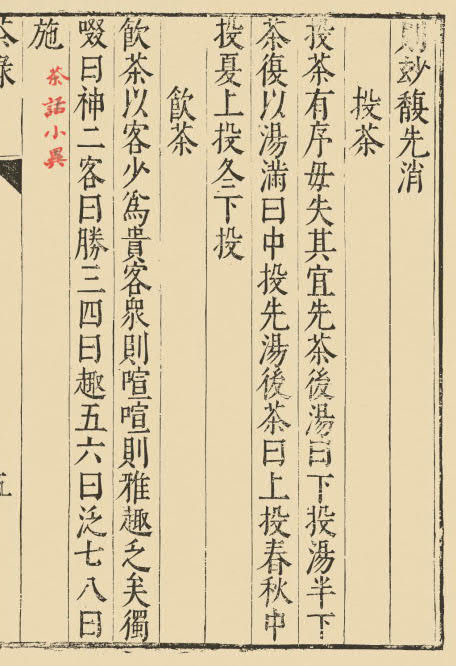 則玅馥先消
投茶
投茶有序毋失其宜先茶後湯曰下投湯半下
茶復以湯滿曰中投先湯後茶曰上投春秋中
投夏上投冬下投
飲茶
飲茶以客少爲貴客衆則喧喧則雅趣乏矣獨
啜曰神二客曰勝三四曰趣五六曰泛七八曰
施
茶話小異
茶錄
五